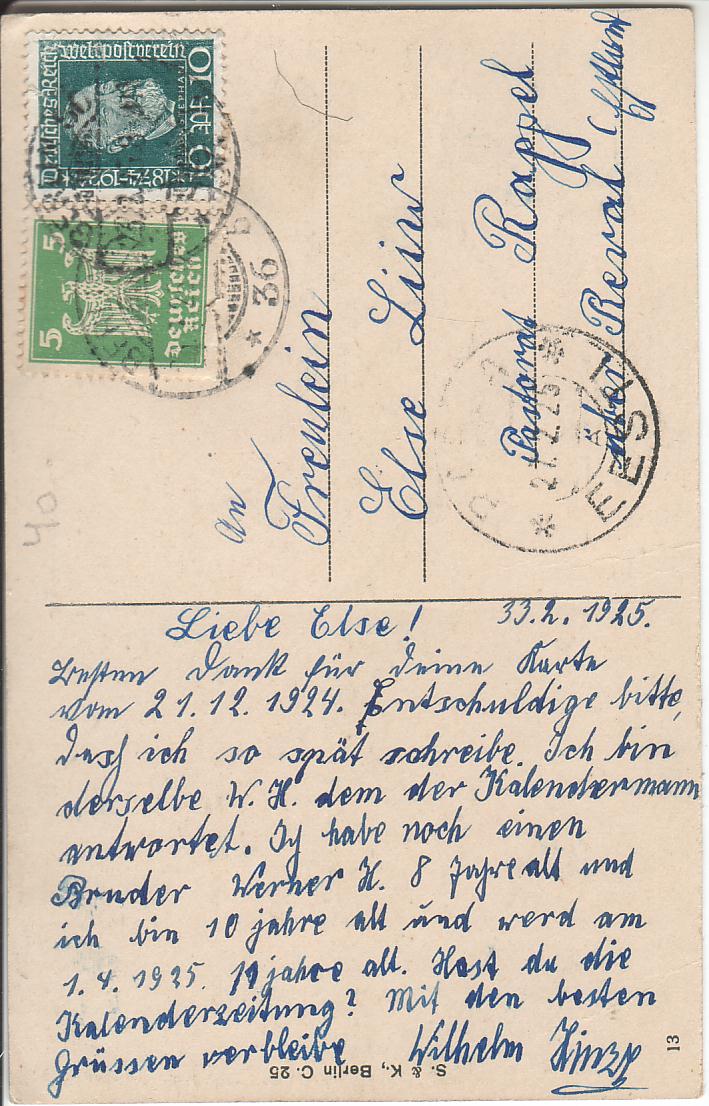 Deutsches Reich
Weltpostverein
10 Pf 10
1874-1924
5 5
Deutsches Reich
* 36
EESTI
40
An
Freulein
Else Liiw
Pastorat Rappel
über Reval (Estland)
Liebe Else! 33.2.1925.
Besten Dank für deine Karte
vom 21.12.1924. Entschuldige bitte,
dass ich so spät schreibe. Ich bin
derselbe W. H. dem der Kalendermann
antwortet. Ich habe noch einen
Bruder Werner H. 8 Jahre alt und
ich bin 10 jahre alt und werd am
1.4.1925. 11 jahre alt. Hast du die
Kalenderzeitung? Mit den besten
Grüssen verbleibe Wilhelm Hinze
S. & K., Berlin C. 25
13